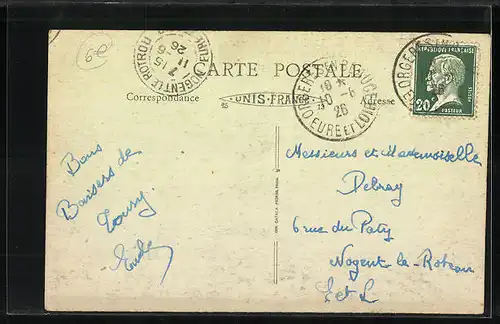 600
NOGENT LE ROTROU
7 15
11 6
26
CARTE POSTALE
Correspondance
UNIS-FRANCE
Adresse
16 *
10 - 6
26
EURE ET LOIR
ORGERES
REPUBLIQUE FRANÇAISE
POSTES
20c
PASTEUR
Bons
Baisers de
Toury
Messieurs et Mademoiselle
Debray
6 rue du Paty
Nogent le Rotrou
E et L